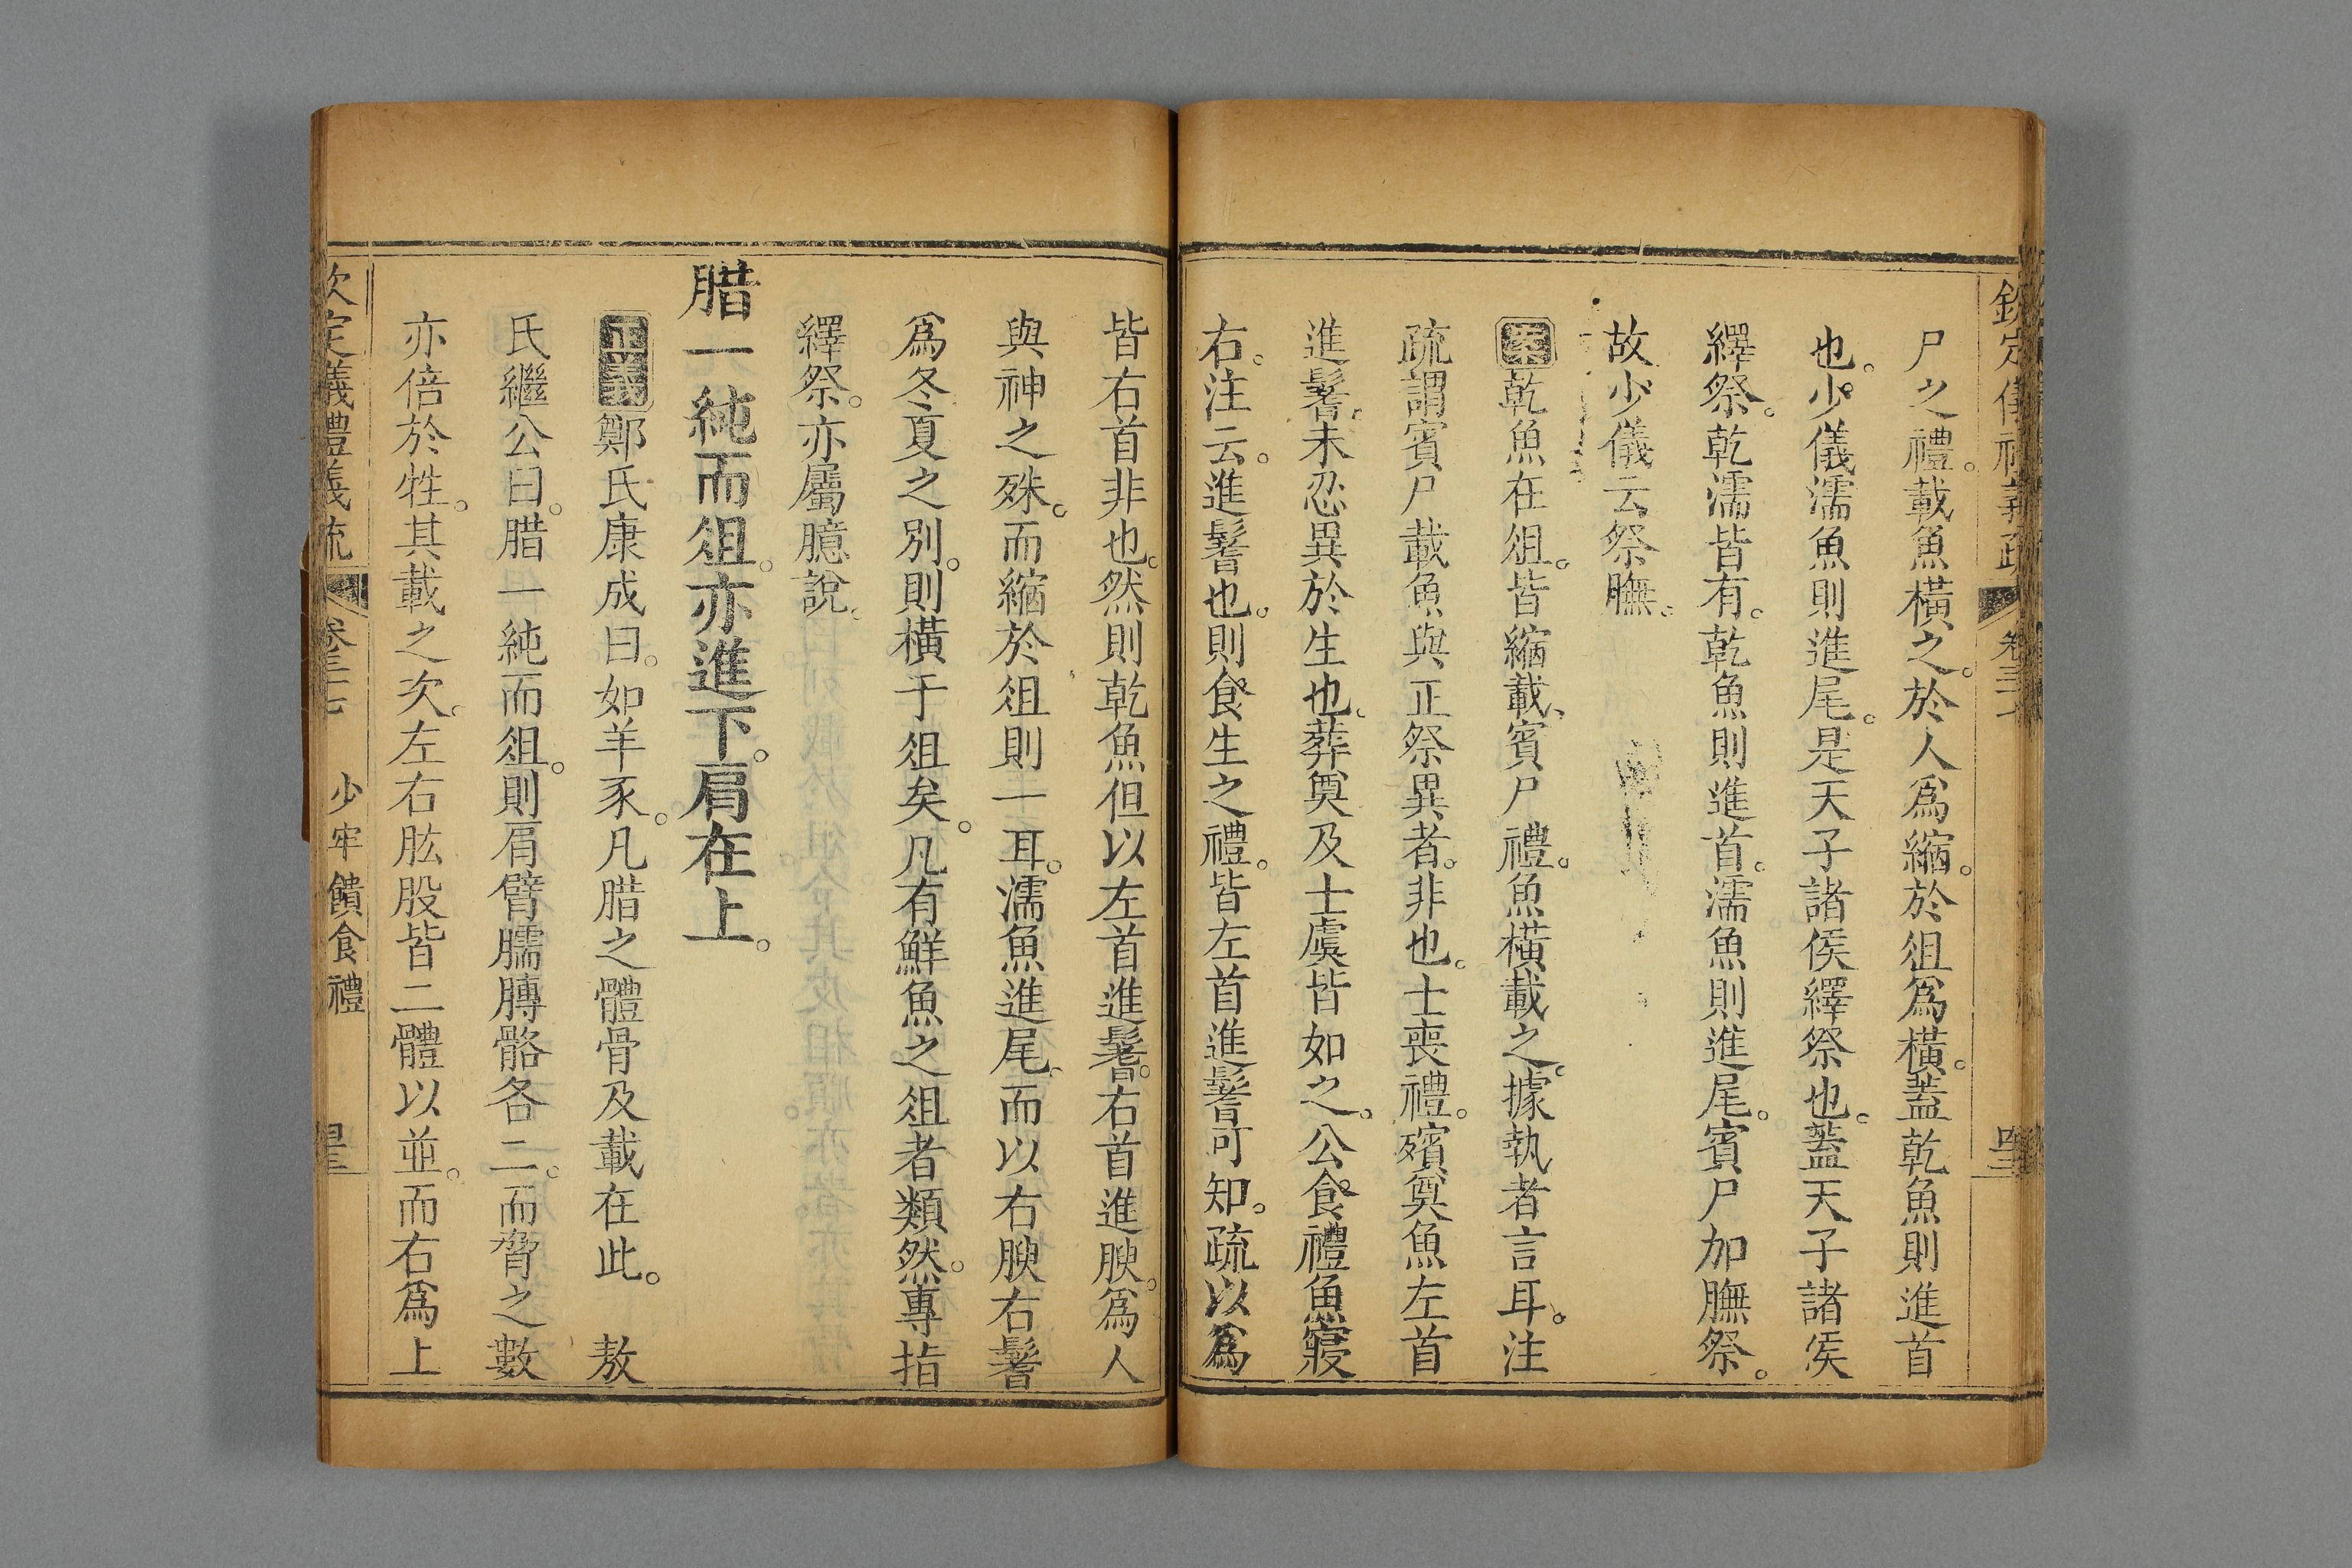 尸之禮。載魚橫之。於人爲縮。於俎爲橫。蓋乾魚則進首
也。少儀濡魚則進尾。是天子諸侯繹祭也。蓋天子諸侯
繹祭。乾濡皆有。乾魚則進首。濡魚則進尾。賓尸加膴祭。
故少儀云祭膴。
案乾魚在俎。皆縮載、賓尸禮。魚橫載之。據執者言耳。注
疏謂賓尸載魚與正祭異者。非也。士喪禮。殯奠魚左首
進鬐。未忍異於生也。葬奠及士虞皆如之。公食禮魚寢
右。注云。進鬐也。則食生之禮。皆左首進鬐可知。疏以爲
皆右首非也。然則乾魚但以左首進鬐。右首進腴。爲人
與神之殊。而縮於俎則一耳。濡魚進尾。而以右腴右鬐
爲冬夏之別。則橫于俎矣。凡有鮮魚之俎者類然。專指
繹祭。亦屬臆說。
腊一純而俎。亦進下。肩在上。
正義鄭氏康成曰。如羊豕。凡腊之體骨及載在此。 敖
氏繼公曰。腊一純而俎。則肩臂臑膊骼各二。而脅之數
亦倍於牲。其載之次。左右肱股皆二體以並。而右爲上
欽定儀禮義疏 卷三十七 少牢饋食禮